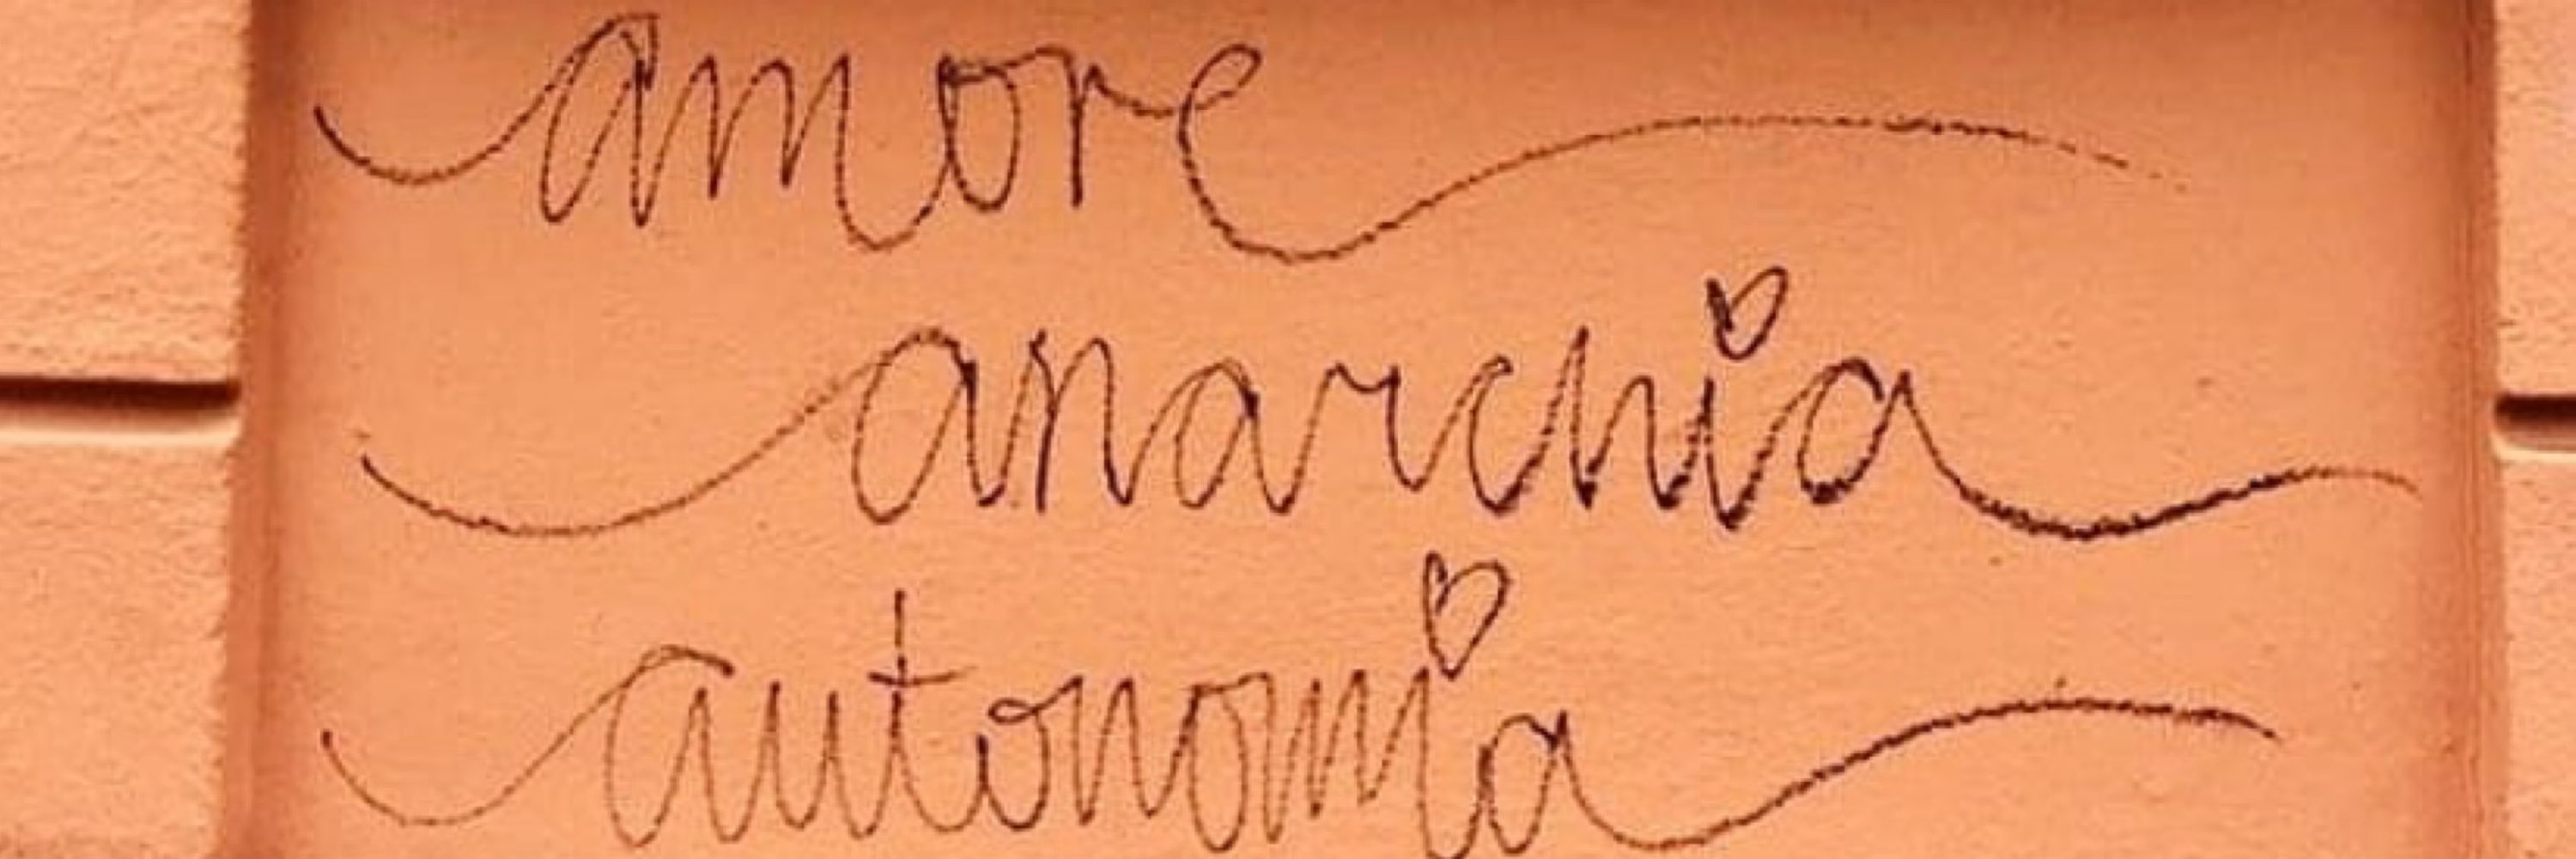 amore
anarchia
autonomia